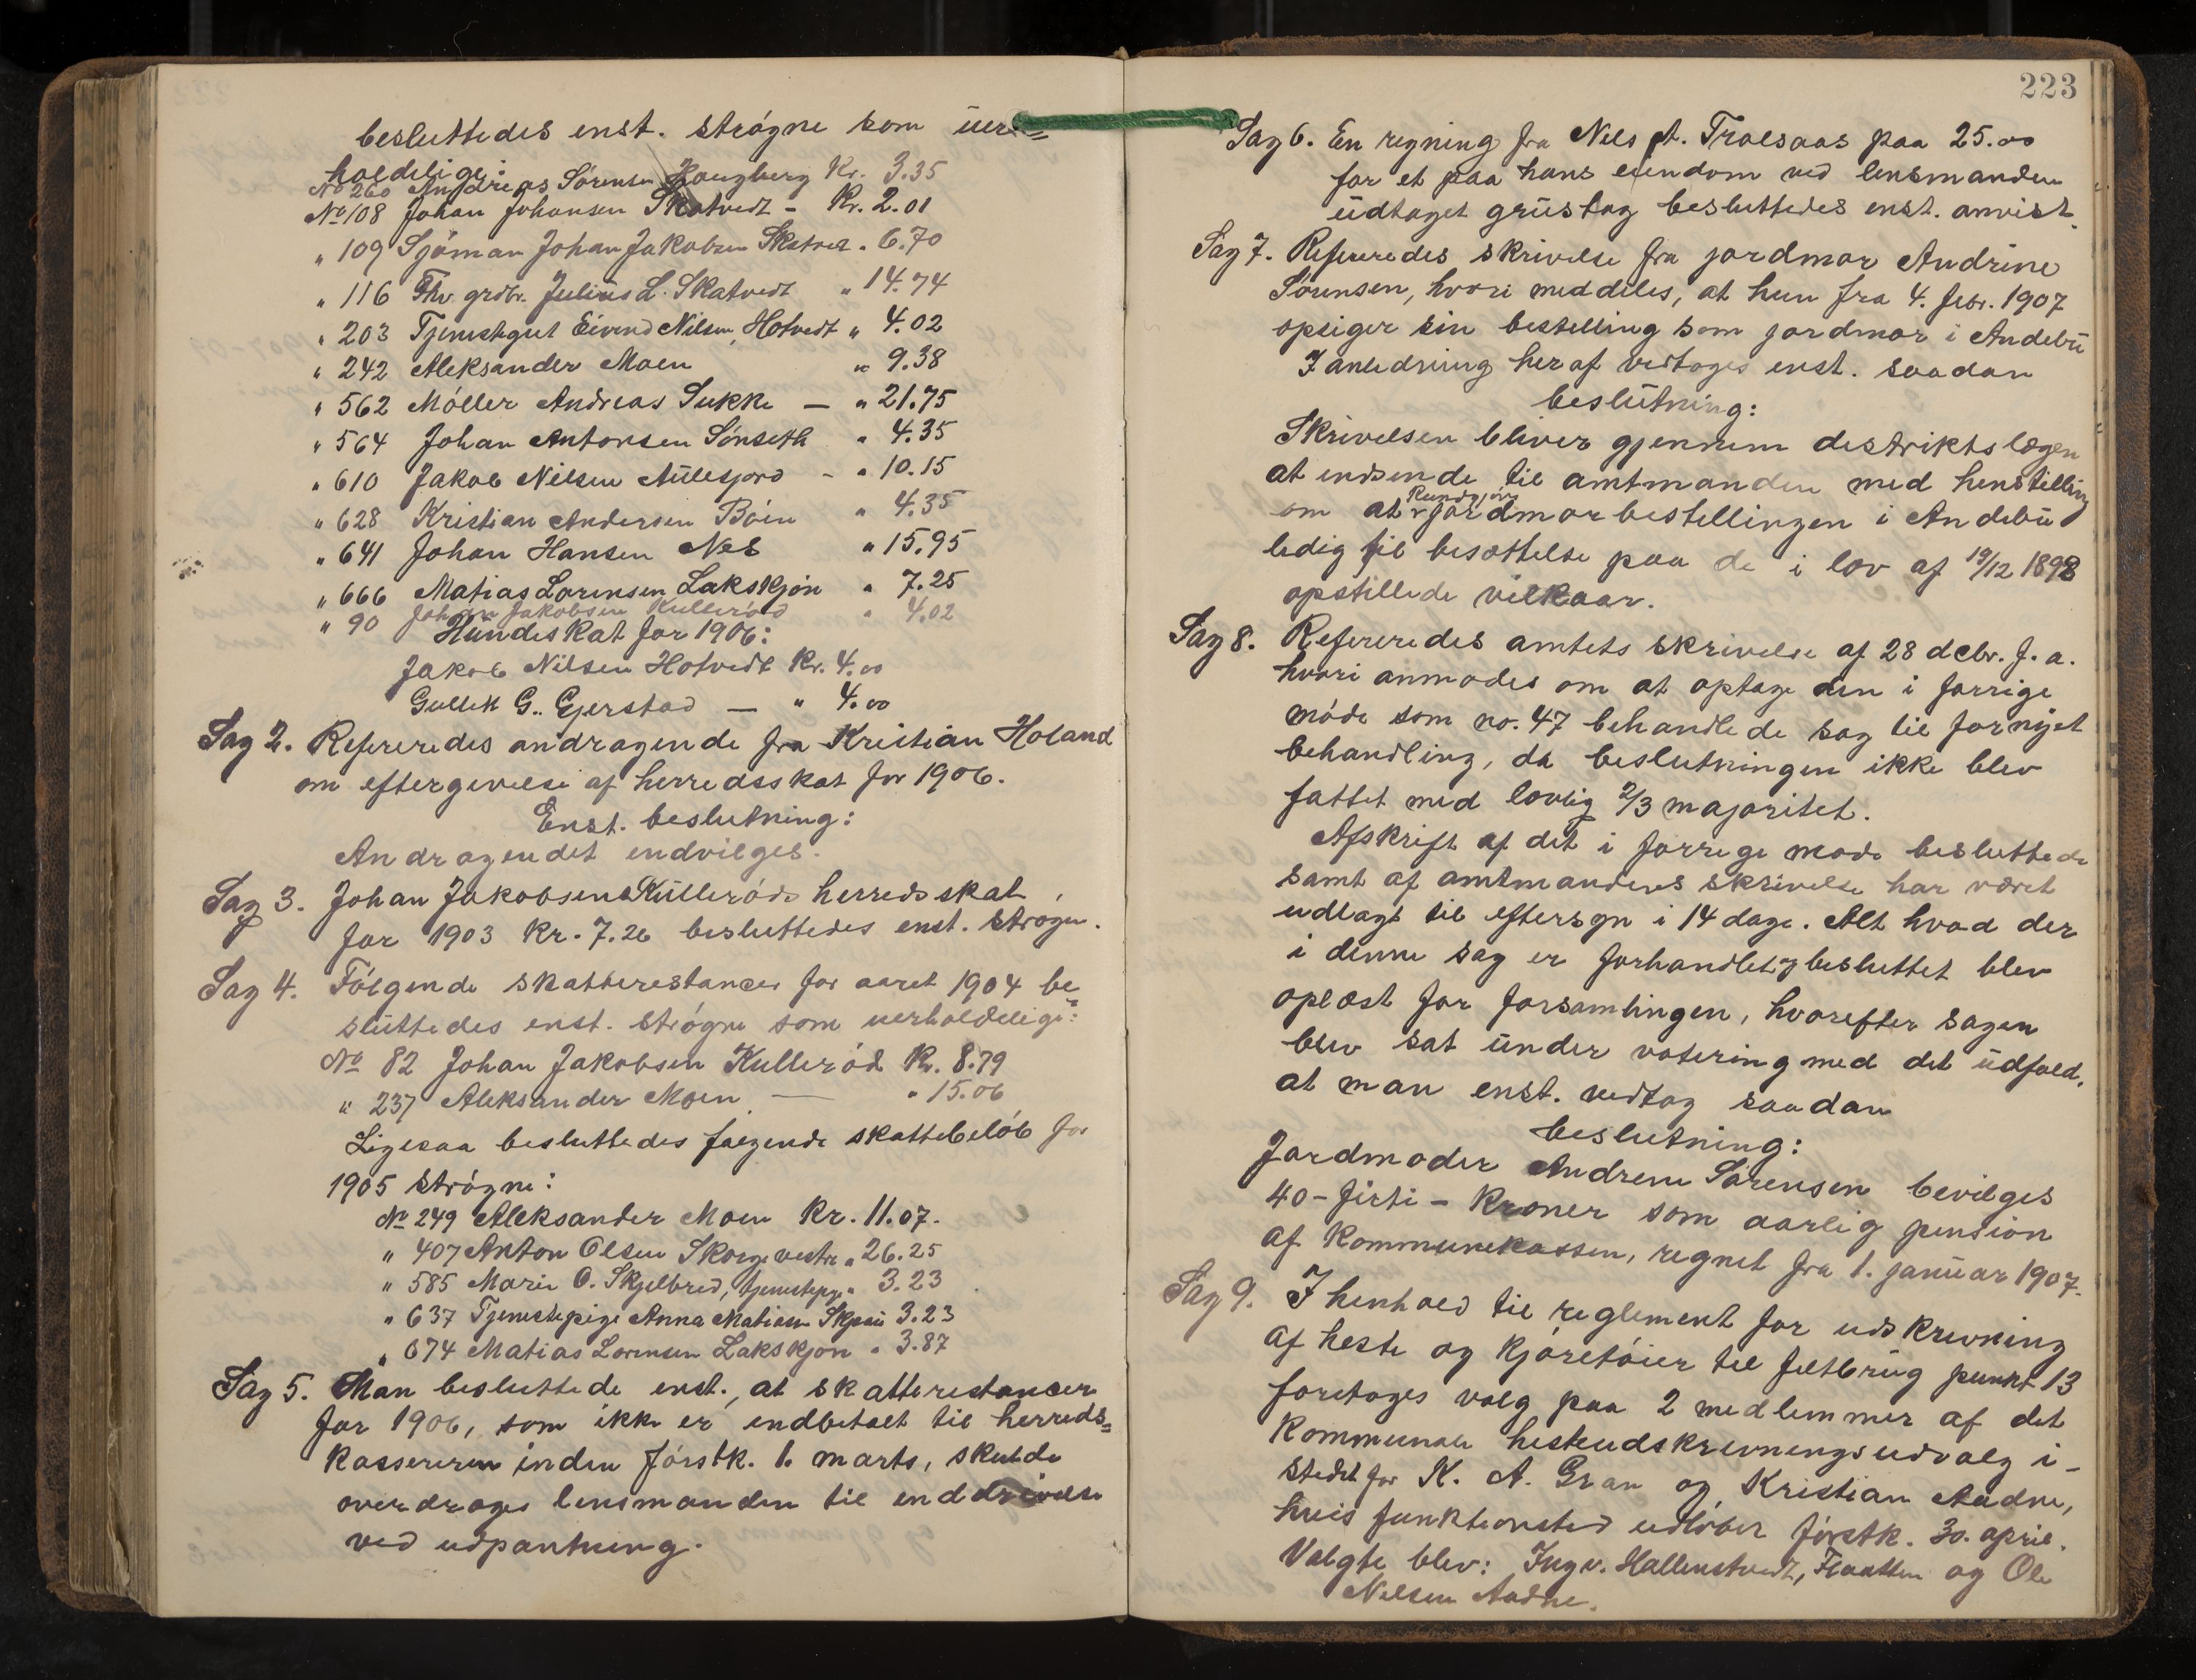 besluttedes enst. strøgne som uer=
holdelige:
No 260 Andreas Sørensen Haugberg Kr. 3.35
No 108 Johan Johansen Skatvedt - Kr. 2.01
" 109 Sjøman Johan Jakobsen Skatvedt " 6.70
" 116 Fhv. grdbr. Julius L. Skatvedt " 14.74
" 203 Tjenestegut Eivind Nilsen, Hotvedt " 4.02
" 242 Aleksander Moen " 9.38
" 562 Møller Andreas Sukke — " 21.75
" 564 Johan Antonsen Sønseth " 4.35
" 610 Jakob Nilsen Aulesjord - " 10.15
" 628 Kristian Andersen Bøen " 4.35
" 641 Johan Hansen Nes " 15.95
" 666 Matias Lorensen Lakskjøn " 7.25
" 90 Johan Jakobsen Kullerød " 4.02
Hundeskat for 1906:
Jakob Nilsen Hotvedt Kr. 4.00
Gullik G. Gjerstad — " 4.00
Sag 2. Refereredes andragende fra Kristian Hotand
om eftergivelse af herredsskat for 1906.
Enst. beslutning:
Andragendet indvilges.
Sag 3. Johan Jakobsens Kullerøds herredsskat
for 1903 Kr. 7.26 besluttedes enst. strøgen.
Sag 4. Følgende skatterestancer for aaret 1904 be=
sluttedes enst. strøgne som uerholdelige:
No 82 Johan Jakobsen Kullerød Kr. 8.79
" 237 Aleksander Moen — " 15.06
Ligesaa besluttedes følgende skattebeløb for
1905 strøgne:
No 249 Aleksander Moen Kr. 11.07.
" 407 Anton Olsen Skorge vestre " 26.25
" 585 Marie O. Skjelbred, tjenestepg. " 3.23
" 637 Tjenestepige Anna Matisen 3.23
" 674 Matias Lorensen Lakskjøn " 3.87
Sag 5. Man besluttede enst., at skatterestancer
for 1906, som ikke er indbetalt til herreds=
kassereren inden førstk. 1. marts, skulde
overdrages lensmanden til inddrivelse
ved udpantning.
223
Sag 6. En regning fra Nels A. Trolsaas paa 25.00
for et paa hans eiendom ved lensmanden
udtaget grustag besluttedes enst. anvist.
Sag 7. Refereredes skrivelse fra jordmor Andrine
Sørensen, hvori meddeles, at hun fra 4. febr. 1907
opsiger sin bestilling som jordmor i Andebu
I anledning heraf vedtoges enst. saadan
beslutning:
Skrivelsen bliver gjennem distriktslægen
at indsende til amtmanden med henstilling
om at kundgjøre jordmorbestillingen i Andebu
ledig til besættelse paa de i lov af 19/12 1898
opstillede vilkaar.
Sag 8. Refereredes amtets skrivelse af 28 dcbr. f. a.
hvori anmodes om at optage den i forrige
møde som no. 47 behandlede sag til fornyet
behandling, da beslutningen ikke blev
fattet med lovlig 2/3 majoritet.
Afskrift af det i forrige møde besluttede
samt af amtmandens skrivelse har været
udlagt til eftersyn i 14 dage. Alt hvad der
i denne sag er forhandlet og besluttet blev
oplæst for forsamlingen, hvorefter sagen
blev sat under votering med det udfald,
at man enst. vedtog saadan
beslutning:
Jordmoder Andrene Sørensen bevilges
40 - firti - kroner som aarlig pension
af kommunekassen, regnet fra 1. januar 1907.
Sag 9. I henhold til reglement for udskrivning
af heste og kjøretøier til feltbrug punkt 13
foretoges valg paa 2 medlemmer af det
kommunale hesteudskrivningsudvalg i-
stedet for K. A. Gran og Kristian Aadne,
hvis funktionstid udløber førstk. 30. april.
Valgte blev: Ingv. Hallenstvedt, Flaatten og Ole
Nilsen Aadne.